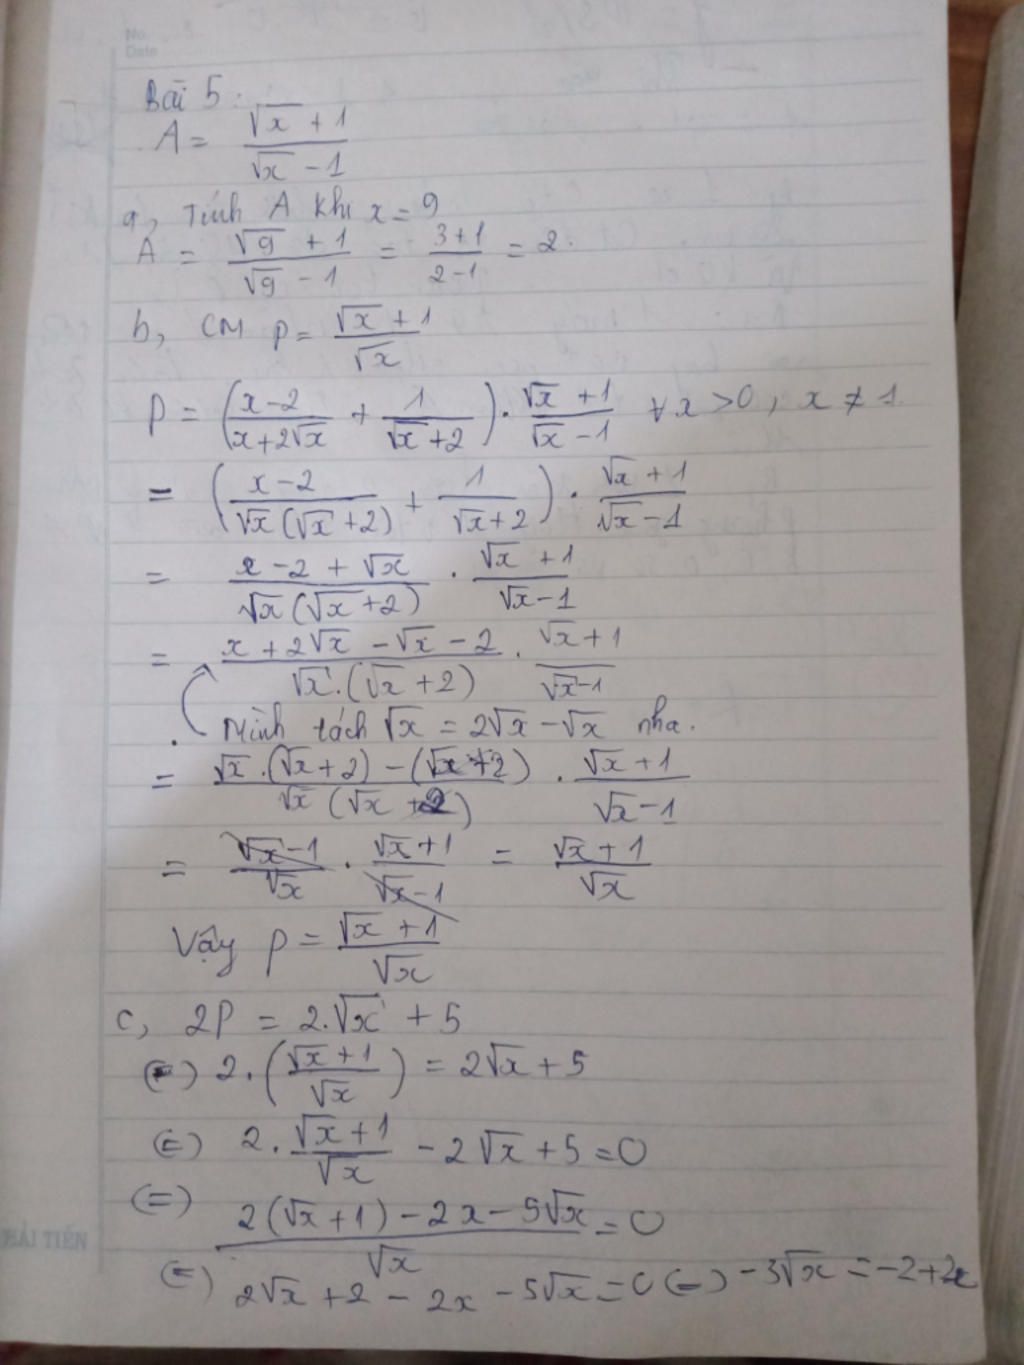 No.
Date
Bài 5:
A = (√x + 1)/(√x - 1)
a, Tính A khi x = 9
A = (√9 + 1)/(√9 - 1) = (3+1)/(2-1) = 2.
b, CM P = (√x + 1)/√x
P = ((x-2)/(x+2√x) + 1/(√x+2)) . (√x + 1)/(√x - 1) ∀x > 0, x ≠ 1.
= ((x-2)/(√x(√x+2)) + 1/(√x+2)) . (√x + 1)/(√x - 1)
= (x - 2 + √x)/(√x(√x+2)) . (√x + 1)/(√x - 1)
= (x + 2√x - √x - 2)/(√x.(√x+2)) . (√x + 1)/(√x - 1)
Mình tách √x = 2√x - √x nha.
= (√x.(√x+2) - (√x+2))/(√x(√x+2)) . (√x + 1)/(√x - 1)
= (√x - 1)/√x . (√x + 1)/(√x - 1) = (√x + 1)/√x
Vậy P = (√x + 1)/√x
c, 2P = 2.√x + 5
(=) 2.((√x + 1)/√x) = 2√x + 5
(=) 2.(√x + 1)/√x - 2√x + 5 = 0
(=) (2(√x + 1) - 2x - 5√x)/√x = 0
(=) 2√x + 2 - 2x - 5√x = 0 (=) -3√x = -2+2x
HẢI TIẾN